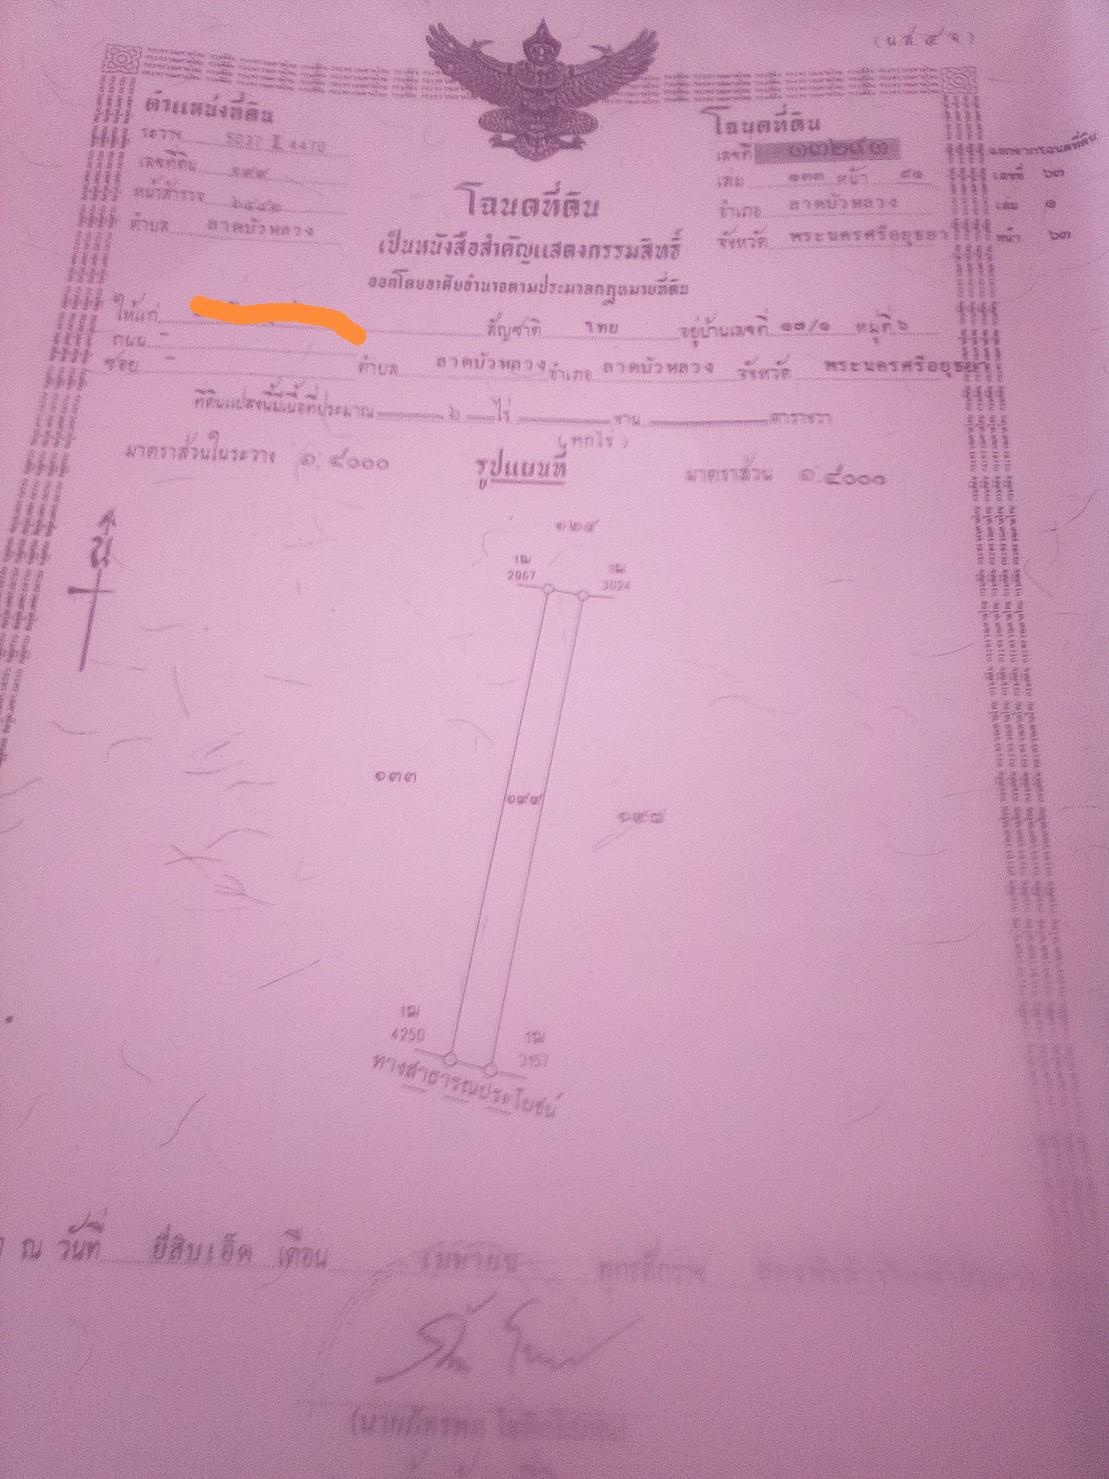 (น.ส.๔ จ.)
ตำแหน่งที่ดิน
ระวาง 5037 II 4470
เลขที่ดิน ๑๙๙
หน้าสำรวจ
ตำบล ลาดบัวหลวง
โฉนดที่ดิน
เลขที่ ๑๓๒๙๓
เล่ม ๑๓๓ หน้า ๙๑
อำเภอ ลาดบัวหลวง
จังหวัด พระนครศรีอยุธยา
แยกจากโฉนดที่ดิน
เลขที่ ๖๓
เล่ม ๑
หน้า ๖๓
โฉนดที่ดิน
เป็นหนังสือสำคัญแสดงกรรมสิทธิ์
ออกโดยอาศัยอำนาจตามประมวลกฎหมายที่ดิน
ให้แก่ สัญชาติ ไทย อยู่บ้านเลขที่ ๑๗/๑ หมู่ที่ ๖
ถนน -
ซอย - ตำบล ลาดบัวหลวง อำเภอ ลาดบัวหลวง จังหวัด พระนครศรีอยุธยา
ที่ดินแปลงนี้มีเนื้อที่ประมาณ ๖ ไร่ งาน ตารางวา
(หกไร่)
มาตราส่วนในระวาง ๑:๔๐๐๐ รูปแผนที่ มาตราส่วน ๑:๔๐๐๐
น
๑๒๔
1ฒ
2967
1ฒ
3024
๑๓๓
๑๙๙
๑๙๘
1ฒ
4250
1ฒ
3157
ทางสาธารณประโยชน์
ณ วันที่ ยี่สิบเอ็ด เดือน เมษายน พุทธศักราช